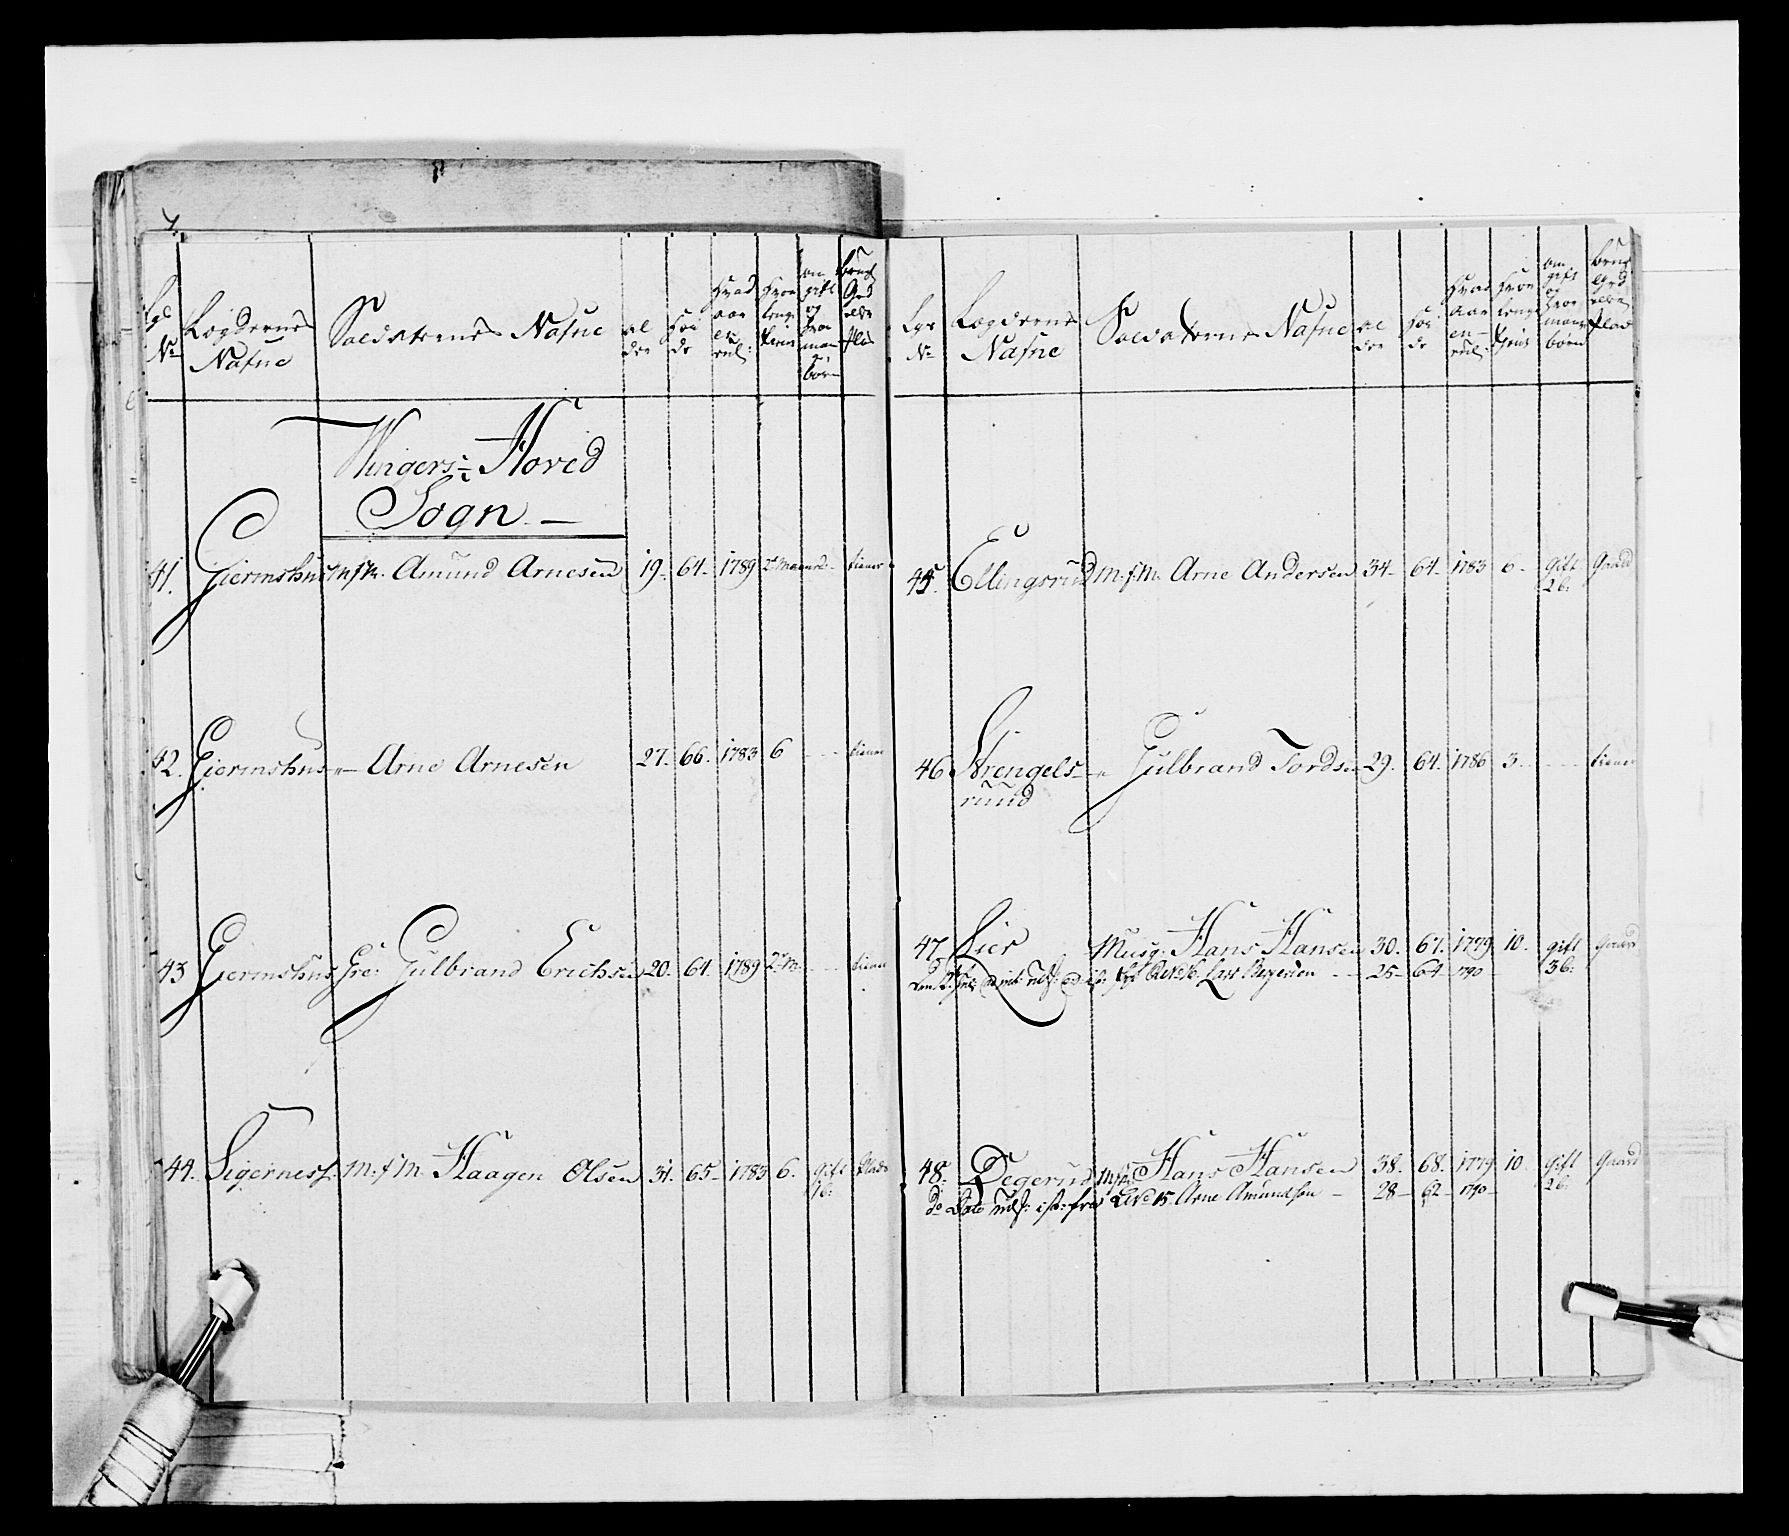 Lgs No Lægdernes Nafne Soldaternes Nafne al der Høi de Hvad aar en rul: Hvor længe tient om gift og hvor mang børn brug Grd eller Plds
Wingers Hoved
Sogn
41. Giermshus M:f:M: Amund Arnesen 19. 64. 1789 2 Maaned tiener
42. Giermshus Arne Arnesen 27. 66. 1783 6 tiener
43 Giermshus Gre: Gulbrand Erichsen 20. 64. 1789 2 M. tiener
44. Sigernes M:f:M Haagen Olsen 31. 65. 1783 6. gift
1b: Plads
Lgs No Lægdernes Nafne Soldaternes Nafne al der Høi de Hvad aar en rul: Hvor længe tient om gift og hvor mang børn brug Grd eller Plads
45. Ellingsrud M:f:M: Arne Andersen 34. 64. 1783 6 gift Gaard
2b:
46 Strengels Gulbrand Tordsen 29. 64. 1786 3. tiener
ruud
47. Lier Musq: Hans Hansen 30. 67. 1779 10. gift Gaard
Lars 25 64 1790 3b:
48. Degerud M:f:M: Hans Hansen 38. 68. 1779 10. gift Gaard
do Dato udsk: i st: fra No 15 Arne Amundsen 28 62 1790 2b: